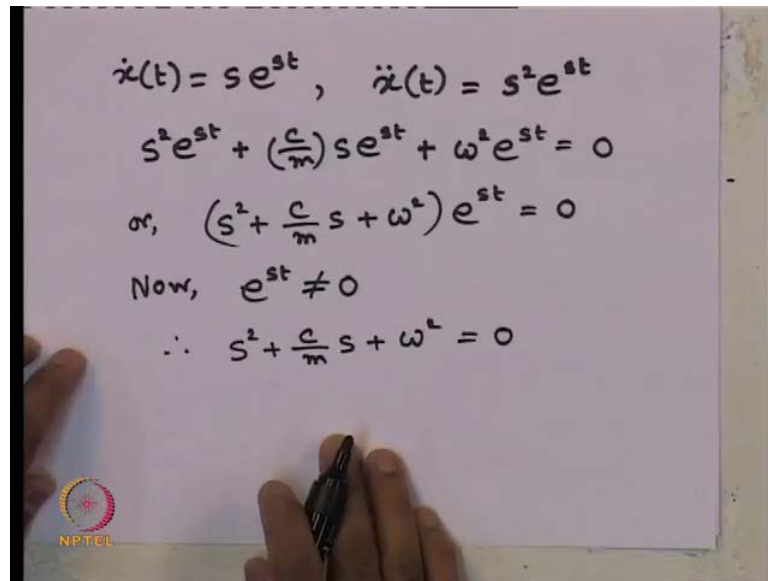 ẋ(t) = s e^{st}, ẍ(t) = s²e^{st}
s²e^{st} + (c/m) s e^{st} + ω²e^{st} = 0
or, (s² + c/m s + ω²) e^{st} = 0
Now, e^{st} ≠ 0
∴ s² + c/m s + ω² = 0
NPTEL